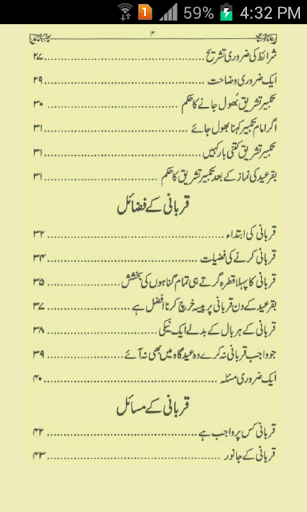 59% 4:32 PM
۴
شرائط کی ضروری تشریح ........ ۲۷
ایک ضروری وضاحت ........ ۲۹
تکبیر تشریق بھول جانے کا حکم ........ ۳۰
اگر امام تکبیر کہنا بھول جائے ........ ۳۱
تکبیر تشریق کتنی بار کہیں ........ ۳۱
بقر عید کی نماز کے بعد تکبیر تشریق کا حکم ........ ۳۱
قربانی کے فضائل
قربانی کی ابتداء ........ ۳۲
قربانی کرنے کی فضیلت ........ ۳۴
قربانی کا پہلا قطرہ گرتے ہی تمام گناہوں کی بخشش ........ ۳۵
بقر عید کے دن قربانی پر پیسہ خرچ کرنا افضل ہے ........ ۳۷
قربانی کے ہر بال کے بدلے ایک نیکی ........ ۳۸
جو واجب قربانی نہ کرے وہ عید گاہ میں بھی نہ آئے ........ ۳۹
ایک ضروری مسئلہ ........ ۴۰
قربانی کے مسائل
قربانی کس پر واجب ہے ........ ۴۲
قربانی کے جانور ........ ۴۳